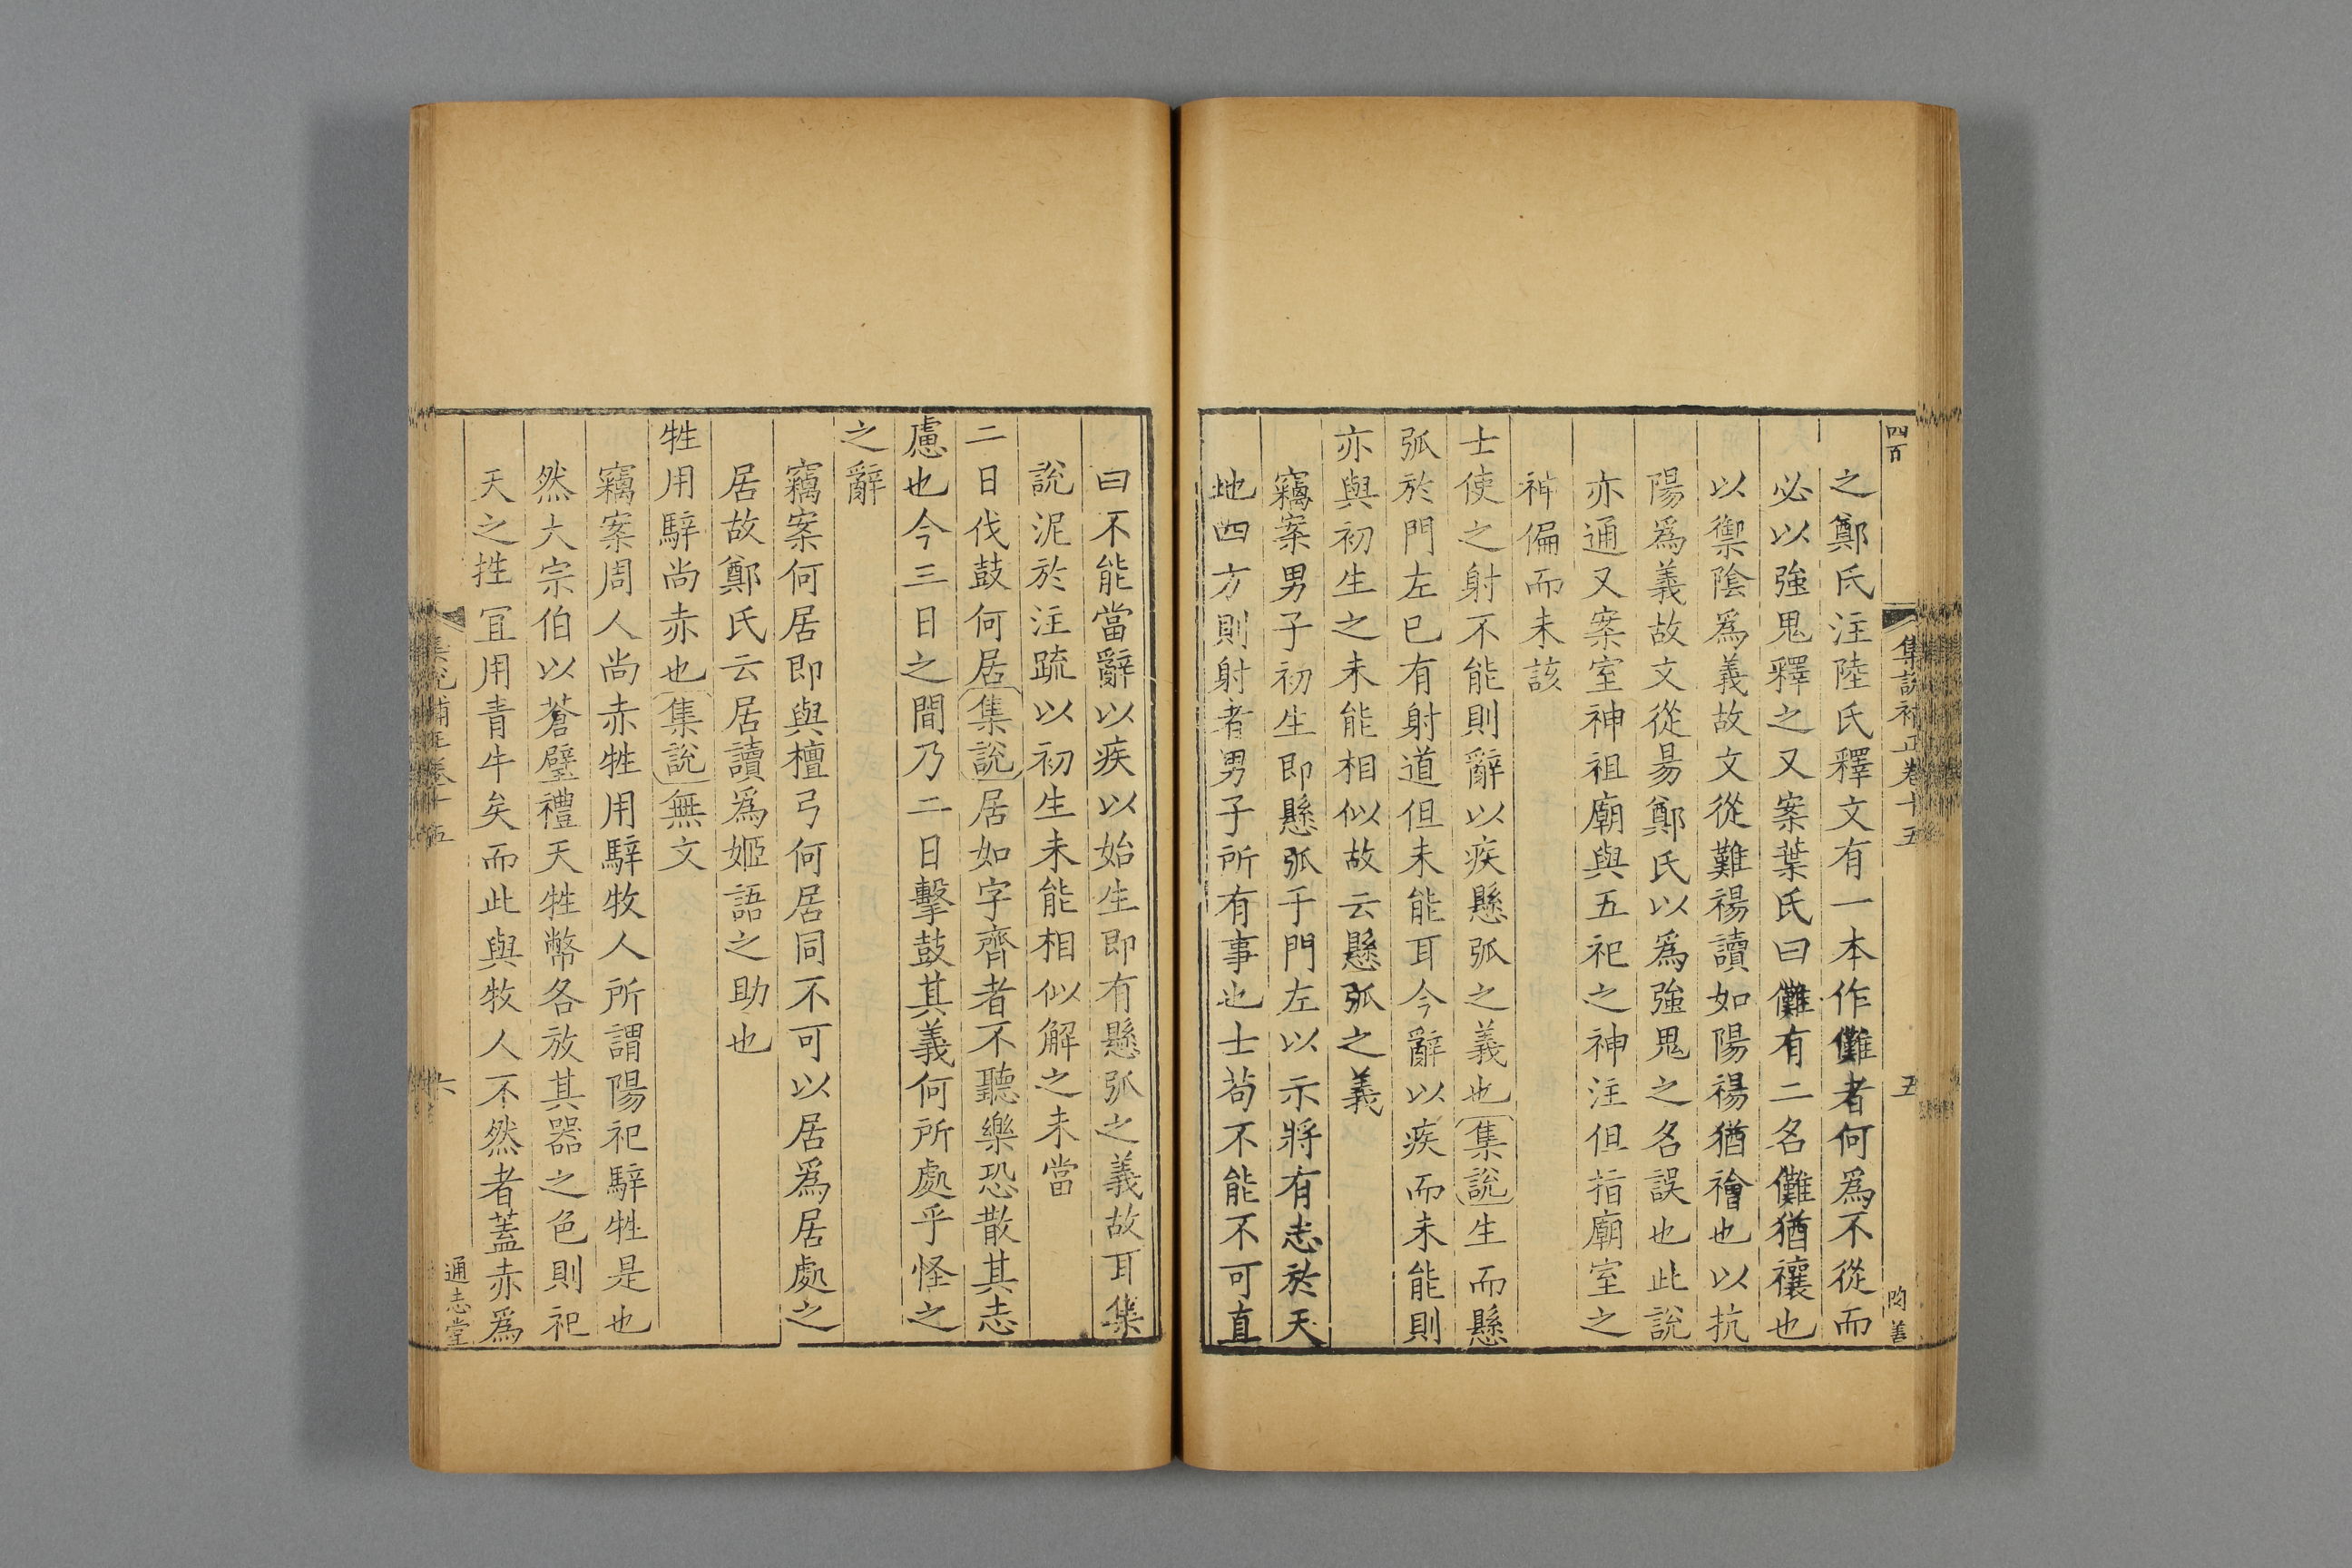 四百
集說補正卷十五
五
尚善
之鄭氏注陸氏釋文有一本作儺者何爲不從而
必以強鬼釋之又案葉氏曰儺有二名儺猶禳也
以禦陰爲義故文從難禓讀如陽禓猶禬也以抗
陽爲義故文從昜鄭氏以爲強鬼之名誤也此說
亦通又案室神祖廟與五祀之神注但指廟室之
神偏而未該
士使之射不能則辭以疾懸弧之義也集說生而懸
弧於門左已有射道但未能耳今辭以疾而未能則
亦與初生之未能相似故云懸弧之義
竊案男子初生即懸弧于門左以示將有志於天
地四方則射者男子所有事也士苟不能不可直
曰不能當辭以疾以始生即有懸弧之義故耳集
說泥於注疏以初生未能相似解之未當
二日伐鼓何居集說居如字齊者不聽樂恐散其志
慮也今三日之間乃二日擊鼓其義何所處乎怪之
之辭
竊案何居即與檀弓何居同不可以居爲居處之
居故鄭氏云居讀爲姬語之助也
牲用騂尚赤也集說無文
竊案周人尚赤牲用騂牧人所謂陽祀騂牲是也
然大宗伯以蒼璧禮天牲幣各放其器之色則祀
天之牲宜用青牛矣而此與牧人不然者蓋赤爲
集說補正卷十五
六
通志堂